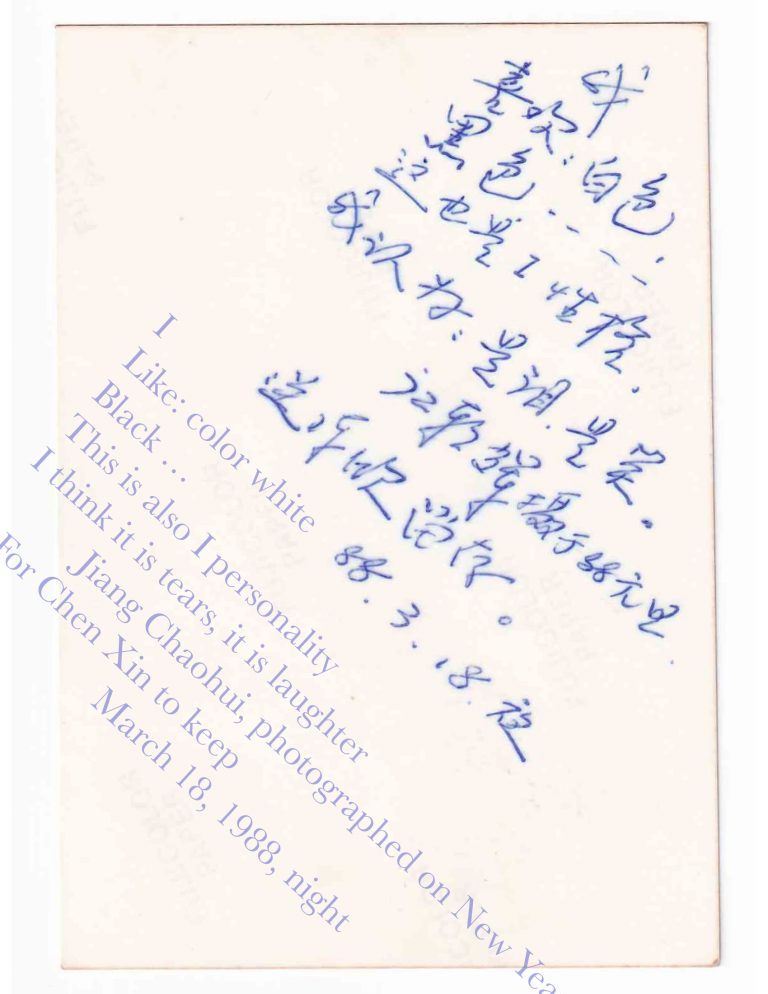 我
喜欢:白色.
黑色....
这也是I性格.
我认为:是泪.是笑。
江朝辉摄于88元旦.
送: 欣留存。
88.3.18.夜
I
Like: color white
Black ...
This is also I personality
I think it is tears, it is laughter
Jiang Chaohui, photographed on New Yea
For Chen Xin to keep
March 18, 1988, night